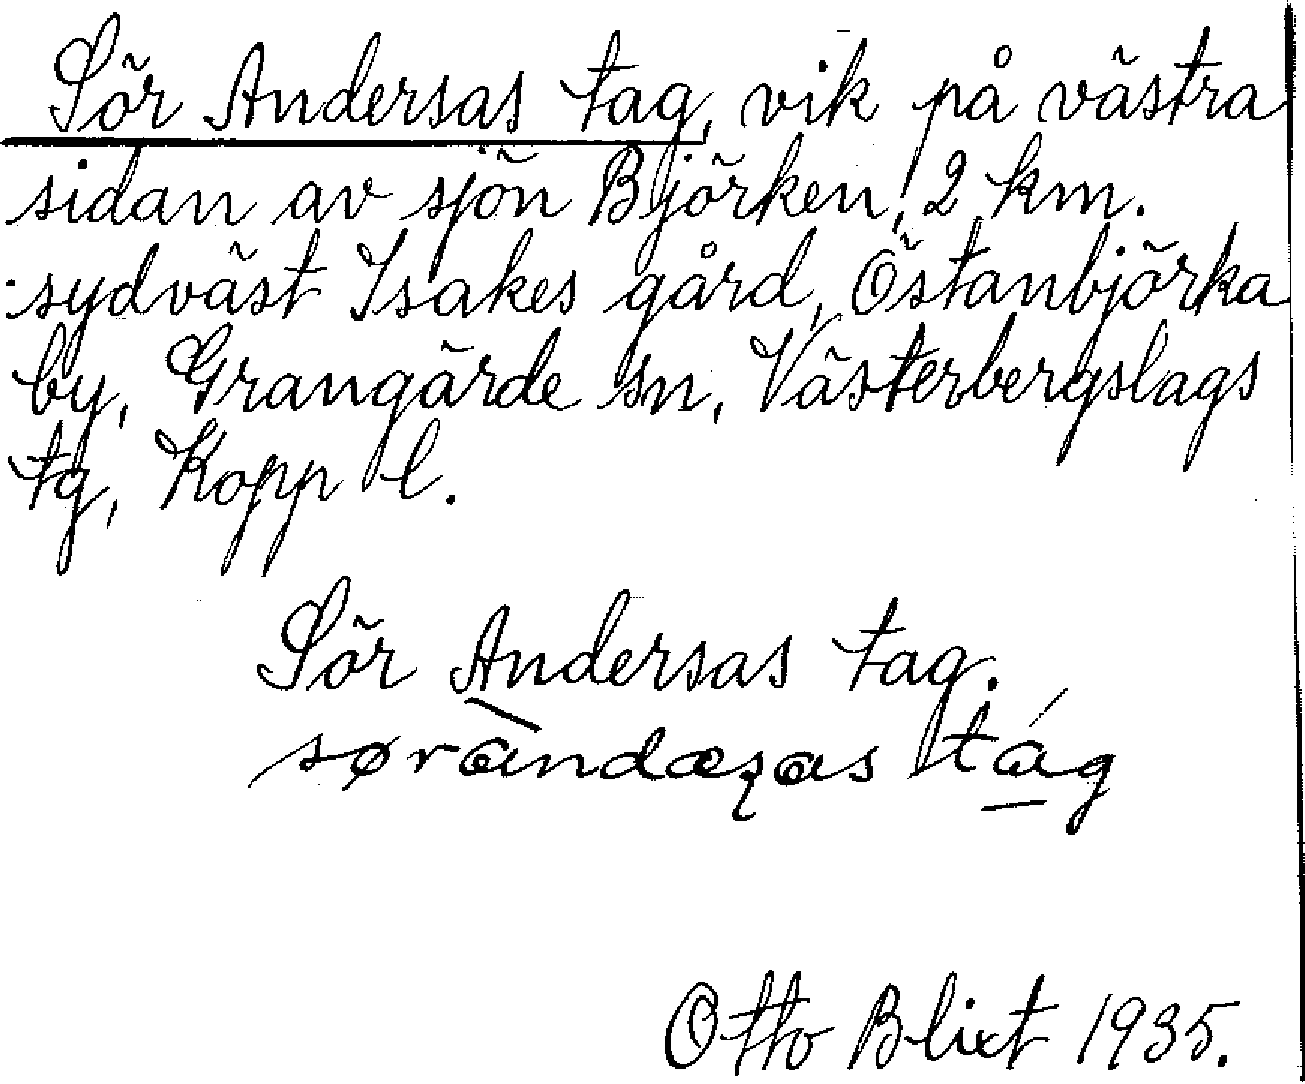 Sör Andersas tag, vik på västra
sidan av sjön Björken, 2 km.
sydväst Isakes gård, Östanbjörka
by, Grangärde sn, Västerbergslags
tg, Kopp l.
Sör Andersas tag.
søràndæʂas tág
Otto Blixt 1935.